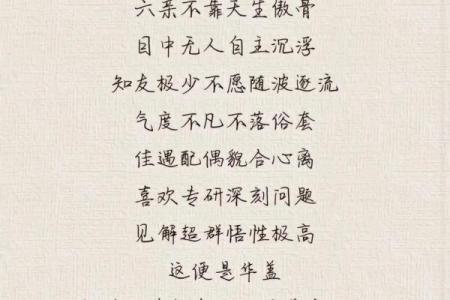 六亲不靠天生傲骨
目中无人自主沉浮
知友极少不愿随波逐流
气度不凡不落俗套
佳遇配偶貌合心离
喜欢专研深刻问题
见解超群悟性极高
这便是华盖